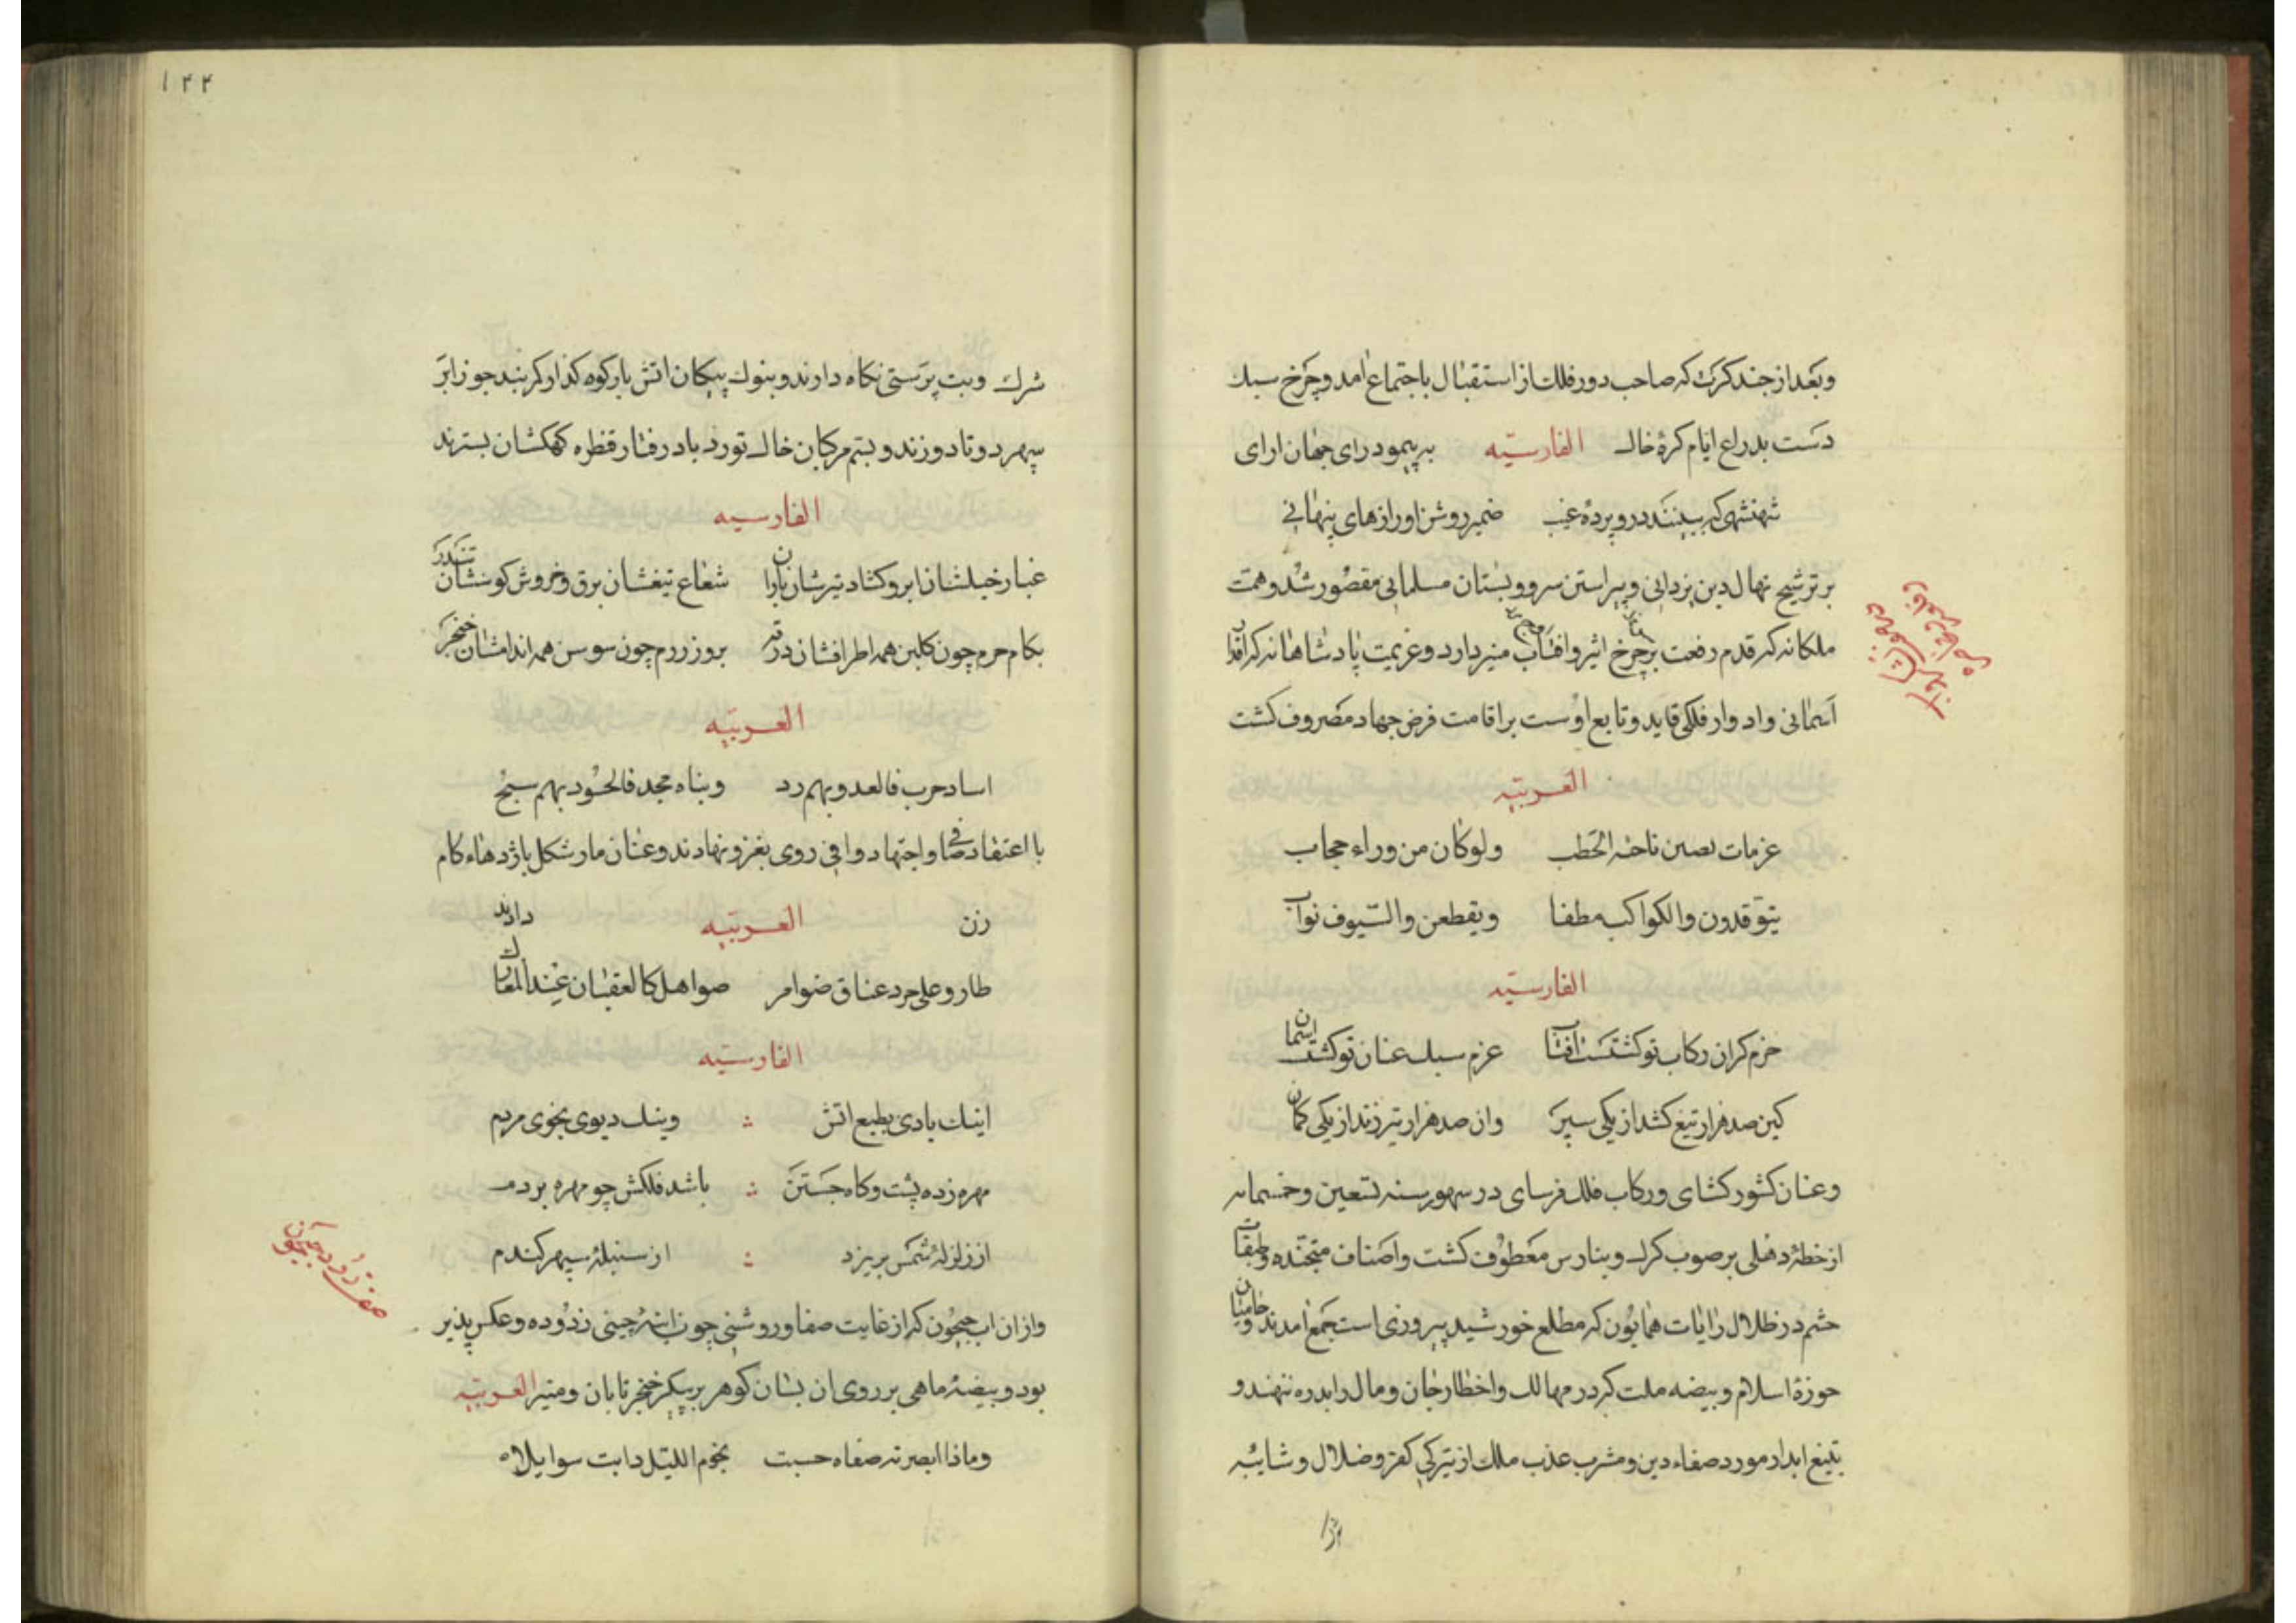 وبعد از چند کرت که صاحب دور فلک از استقبال باجتماع امد و چرخ سبک
دست بدراع ایام کرۀ خاک الفارسیّه بر پیمود رای جهان ارای
شهنشهی که ببینند درو پردۀ غیب ضمیر روشن او رازهای پنهانی
بر ترشیح نهال دین یزدانی و پیراستن سرو و بستان مسلمانی مقصور شد و همت
ملکانه که قدم رفعت بر چرخ اثیر وافتاب منیر دارد و عزیمت پادشاهانه که
آسمانی وادوار فلکی قاید و تابع اوست بر اقامت فرض جهاد مصروف کشت
العربیّه
عزمات ولوکان من وراء حجاب
یتوقدون والکواکب مطفا ویقطعن والسّیوف نواب
الفارسیّه
حزم کران رکاب تو کشتست افتاب عزم سبک عنان تو کشت اسمان
کین صد هزار تیغ کشد از یکی سپر وان صد هزار تیر زند از یکی کمان
وعنان کشور کشای ورکاب فلک فرسای در سهور سنه تسعین وخمسمایه
از خطۀ دهلی بر صوب کرک وبنارس معطوف کشت واصناف متجنده وطبقات
حشم در ظلال رایات همایون که مطلع خورشید پیروزی است جمع امدند وحامیان
حوزۀ اسلام وبیضه ملت که در مهالک واخطار جان ومال را بدره ننهند و
بتیغ ابدار مورد صفاء دین ومشرب عذب ملک از تیرکی کفر وضلال وشائبه
۱۴۴
شرک وبت پرستی نکاه دارند وبنوک پیکان اتش بار کوه کذار کمربند جوزا بر
سپهر دوتا دوزند وبسم مرکبان خاک نورد باد رفتار قطره کهکشان بسترند
الفارسیه
غبار خیلشان ابر وکشاد تیرشان باران شعاع تیغشان برق وخروش کوسشان تندر
بکام حرم چون کلبن همه اطرافشان بروز رزم چون سوسن همه اندامشان خنجر
العربیّه
اساد حرب فالعدو بهم رد وبناه مجد فالحسود بهم
با اعتقاد صافی واجتهاد وافی روی بغزو نهادند وعنان مار شکل باژدهاء کام
زن العربیّه دادند
طاروعلی جرد عناق ضوامر صواهل کالعقبان عند المعارک
الفارسیّه
اینک بادی بطبع اتش وینک دیوی بخوی مردم
مهره زده پشت وکاه جستن باشد فلکش چو مهره بر دم
از زلزلۀ شمس بریزد از سنبلۀ سپهر کندم
وازان اب جیحون که از غایت صفا وروشنی چون اینۀ چینی زدوده وعکس پذیر
بود وبیضۀ ماهی بر روی ان بسان کوهر بر پیکر خنجر تابان ومنیر العربیّه
وماذا ابصرته صفاه حسبت نجوم اللیل دابت سوایلاه